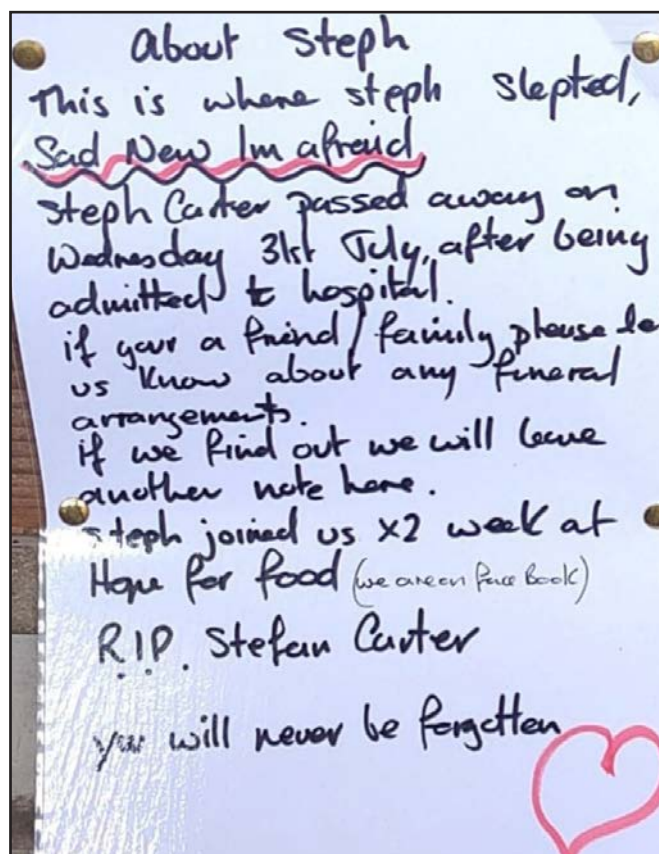 About Steph
This is where steph slepted,
Sad New Im afraid
Steph Carter passed away on
Wednesday 31st July, after being
admitted to hospital.
if your a friend / family please le
us know about any funeral
arrangements.
if we find out we will leave
another note here.
Steph joined us x2 week at
Hope for food (we are on face Book)
R.I.P. Stefan Carter
you will never be forgotten